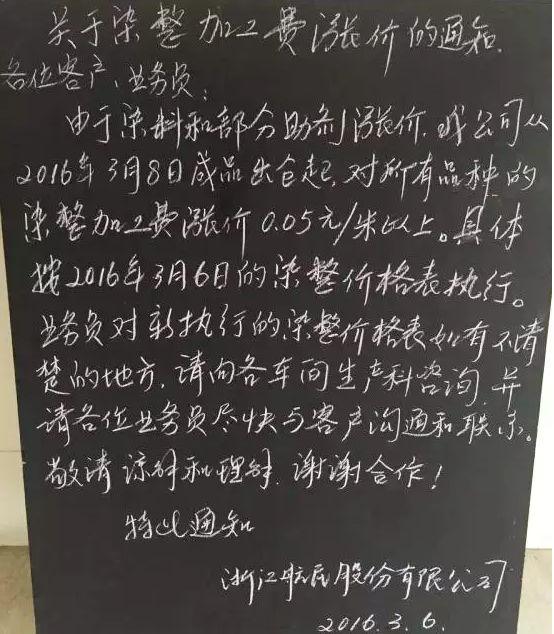 关于染整加工费涨价的通知.
各位客户、业务员:
由于染料和部分助剂涨价.我公司从
2016年3月8日成品出仓起,对所有品种的
染整加工费涨价0.05元/米以上。具体
按2016年3月6日的染整价格表执行。
业务员对新执行的染整价格表如有不清
楚的地方,请向各车间生产科咨询,并
请各位业务员尽快与客户沟通和联系。
敬请谅解和理解,谢谢合作!
特此通知
浙江航民股份有限公司
2016.3.6.